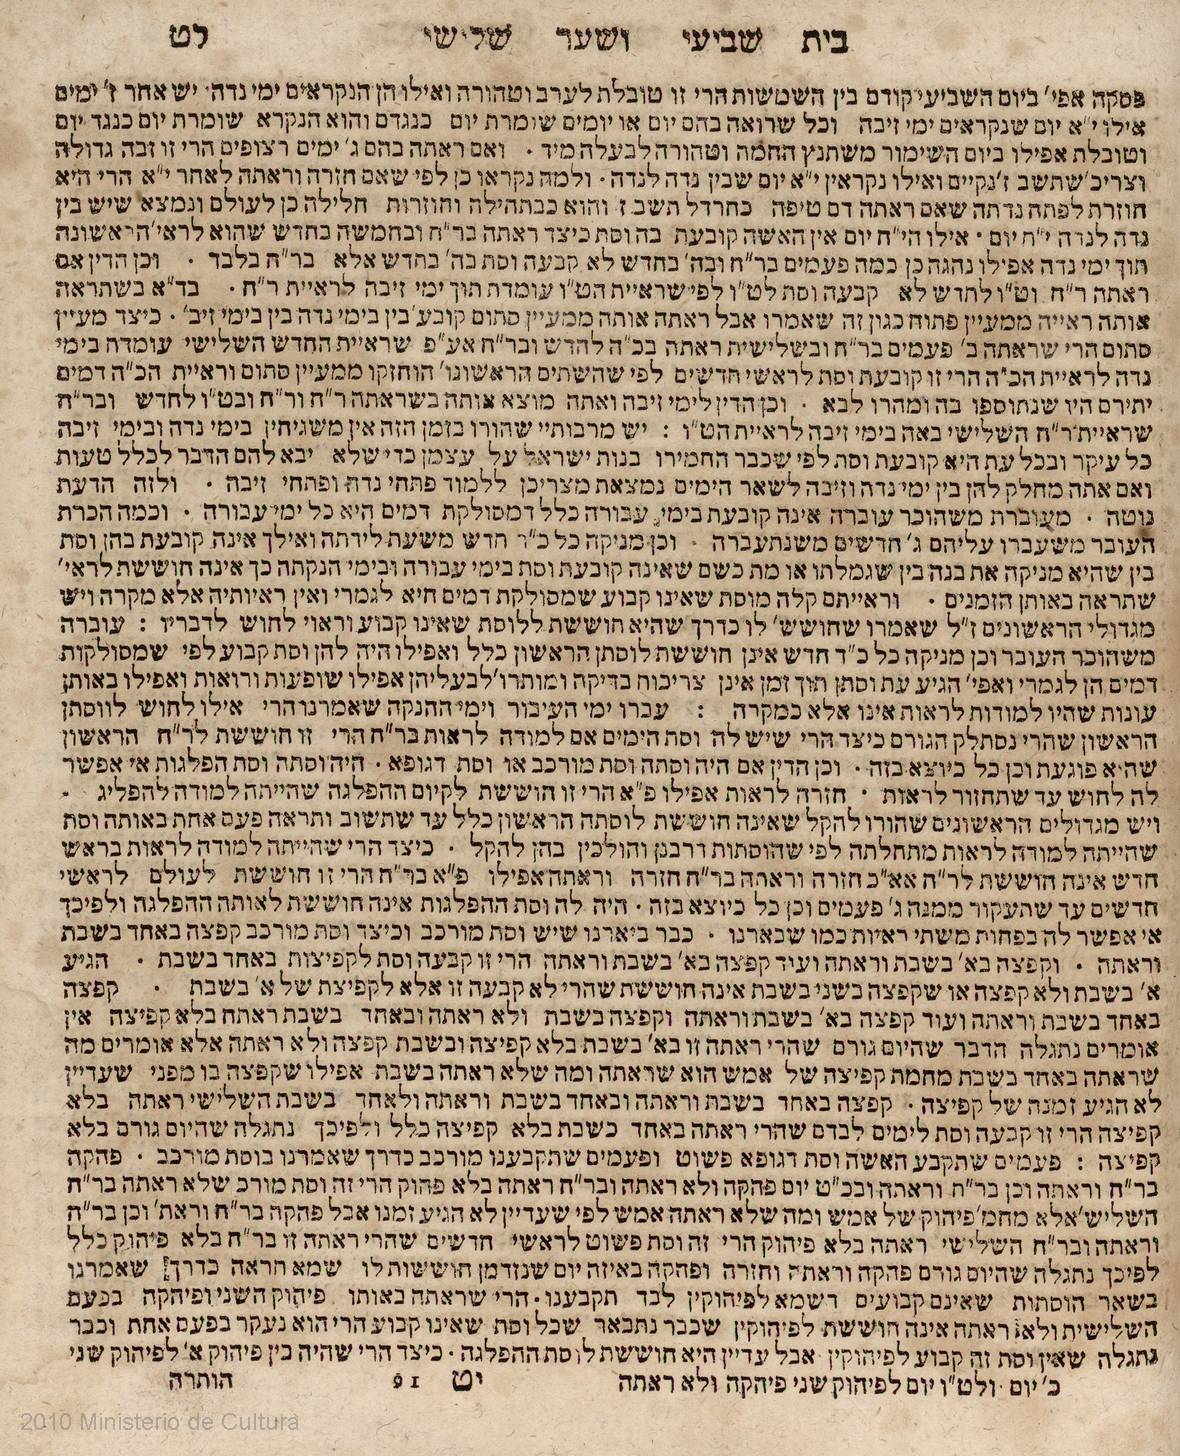 בית שביעי ושער שלישי לט
פסקה אפי׳ ביום השביעי קודם בין השמשות הרי זו טובלת לערב וטהורה ואילו הן הנקראים ימי נדה׳ יש אחר ז׳ ימים
אילו י״א יום שנקראים ימי זיבה וכל שרואה בהם יום או יומים שומרת יום כנגדם והוא הנקרא שומרת יום כנגד יום
וטובלת אפילו ביום השימור משתנץ החמה וטהורה לבעלה מיד · ואם ראתה בהם ג׳ ימים רצופים הרי זו זבה גדולה
וצריכ׳ שתשב ז׳ נקיים ואילו נקראין י״א יום שבין נדה לנדה · ולמה נקראו כן לפי שאם חזרה וראתה לאחר י״א הרי היא
חוזרת לפתה נדתה שאם ראתה דם טיפה כחרדל תשב ז׳ והוא כבתהילה וחוזרות חלילה כן לעולם ונמצא שיש בין
נדה לנדה י״ח יום · אילו הי״ח יום אין האשה קובעת בה וסת כיצד ראתה בר״ח ובחמשה בחדש שהוא לראי׳ הראשונה
תוך ימי נדה אפילו נהגה כן כמה פעמים בר״ח ובה׳ בחדש לא קבעה וסת בה׳ בחדש אלא בר״ח בלבד · וכן הדין אם
ראתה ר״ח וט״ו לחדש לא קבעה וסת לט״ו לפי שראיית הט״ו עומדת תוך ימי זיבה לראיית ר״ח · בד״א בשתראה
אותה ראייה ממעיין פתוח כגון זה שאמרו אבל ראתה אותה ממעיין סתום קובע׳ בין בימי נדה בין בימי זיב׳ · כיצד מעיין
סתום הרי שראתה ב׳ פעמים בר״ח ובשלישית ראתה בכ״ה להדש ובר״ח אע״פ שראיית החדש השלישי עומדת בימי
נדה לראיית הכ״ה הרי זו קובעת וסת לראשי חדשים לפי שהשתים הראשונו׳ הוחזקו ממעיין סתום וראיית הכ״ה דמים
יתירם היו שנתוספו בה ומהרו לבא · וכן הדין לימי זיבה ואתה מוצא אותה בשראתה ר״ח ור״ח ובט״ו לחדש ובר״ח
שראיית ר״ח השלישי באה בימי זיבה לראיית הט״ו : יש מרבותיי שהורו בזמן הזה אין משגיחין בימי נדה ובימי זיבה
כל עיקר ובכל עת היא קובעת וסת לפי שכבר החמירו בנות ישראל על עצמן כדי שלא יבא להם הדבר לכלל טעות
ואם אתה מחלק להן בין ימי נדה וזיבה לשאר הימים נמצאת מצריכן ללמוד פתחי נדה ופתחי זיבה · ולזה הדעת
נוטה · מעוברת משהוכר עוברה אינה קובעת בימי עבורה כלל דמסולקת דמים היא כל ימי עבורה · וכמה הכרת
העובר משעברו עליהם ג׳ חדשים משנתעברה · וכן מניקה כל כ״ד חדש משעת לידתה ואילך אינה קובעת בהן וסת
בין שהיא מניקה את בנה בין שגמלתו או מת כשם שאינה קובעת וסת בימי עבורה ובימי הנקתה כך אינה חוששת לראי׳
שתראה באותן הזמנים · וראייתם קלה מוסת שאינו קבוע שמסולקת דמים היא לגמרי ואין ראיותיה אלא מקרה ויש
מגדולי הראשונים ז״ל שאמרו שחושש׳ לו כדרך שהיא חוששת ללוסת שאינו קבוע וראוי לחוש לדבריו : עוברה
משהוכר העובר וכן מניקה כל כ״ד חדש אינן חוששת לוסתן הראשון כלל ואפילו היה להן וסת קבוע לפי שמסולקות
דמים הן לגמרי ואפי׳ הגיע עת וסתן תוך זמן אינן צריכות בדיקה ומותרו׳ לבעליהן אפילו שופעות ורואות ואפילו באותן
עונות שהיו למודות לראות אינו אלא כמקרה : עברו ימי העיבור וימי ההנקה שאמרנו הרי אילו לחוש לווסתן
הראשון שהרי נסתלק הגורם כיצד הרי שיש לה וסת הימים אם למודה לראות בר״ח הרי זו חוששת לר״ח הראשון
שהיא פוגעת וכן כל כיוצא בזה · וכן הדין אם היה וסתה וסת מורכב או וסת דגופא · היה וסתה וסת הפלגות אי אפשר
לה לחוש עד שתחזור לראות · חזרה לראות אפילו פ״א הרי זו הוששת לקיום ההפלגה שהייתה למודה להפליג ·
ויש מגדולים הראשונים שהורו להקל שאינה חוששת לוסתה הראשון כלל עד שתשוב ותראה פעם אחת באותה וסת
שהייתה למודה לראות מתחלתה לפי שהוסתות דרבנן והולכין בהן להקל · כיצד הרי שהייתה למודה לראות בראש
חדש אינה הוששת לר״ח אא״כ חזרה וראתה בר״ח חזרה וראתה אפילו פ״א בר״ח הרי זו חוששת לעולם לראשי
חדשים עד שתעקור ממנה ג׳ פעמים וכן כל כיוצא בזה · היה לה וסת ההפלגות אינה חוששת לאותה ההפלגה ולפיכך
אי אפשר לה בפחות משתי ראיות כמו שבארנו · כבר ביארנו שיש וסת מורכב וכיצד וסת מורכב קפצה באחד בשבת
וראתה · וקפצה בא׳ בשבת וראתה ועוד קפצה בא׳ בשבת וראתה הרי זו קבעה וסת לקפיצות באחד בשבת · הגיע
א׳ בשבת ולא קפצה או שקפצה בשני בשבת אינה חוששת שהרי לא קבעה זו אלא לקפיצת של א׳ בשבת · קפצה
באחד בשבת וראתה ועוד קפצה בא׳ בשבת וראתה וקפצה בשבת ולא ראתה ובאחד בשבת ראתה בלא קפיצה אין
אומרים נתגלה הדבר שהיום גורם שהרי ראתה זו בא׳ בשבת בלא קפיצה ובשבת קפצה ולא ראתה אלא אומרים מה
שראתה באחד בשבת מחמת קפיצה של אמש הוא שראתה ומה שלא ראתה בשבת אפילו שקפצה בו מפני שעדיין
לא הגיע זמנה של קפיצה · קפצה באחד בשבת וראתה ובאחד בשבת וראתה ולאחד בשבת השלישי ראתה בלא
קפיצה הרי זו קבעה וסת לימים לבדם שהרי ראתה באחד כשבת בלא קפיצה כלל ולפיכך נתגלה שהיום גורם בלא
קפיצה : פעמים שתקבע האשה וסת דגופא פשוט ופעמים שתקבענו מורכב כדרך שאמרנו בוסת מורכב · פהקה
בר״ח וראתה וכן בר״ח וראתה ובכ״ט יום פהקה ולא ראתה ובר״ח ראתה בלא פהוק הרי זה וסת מורכ׳ שלא ראתה בר״ח
השליש׳ אלא מחמ׳ פיהוק של אמש ומה שלא ראתה אמש לפי שעדיין לא הגיע זמנו אבל פהקה בר״ח וראת׳ וכן בר״ח
וראתה ובר״ח השלישי ראתה בלא פיהוק הרי זה וסת פשוט לראשי חדשים שהרי ראתה זו בר״ח בלא פיהוק כלל
לפיכך נתגלה שהיום גורם פהקה וראתה וחזרה ופהקה באיזה יום שנזדמן חוששות לו שמא תראה כדרך שאמרנו
בשאר הוסתות שאינם קבועים דשמא לפיהוקין לבד תקבענו · הרי שראתה באותו פיהוק השני ופיהקה בפעם
השלישית ולא ראתה אינה חוששת לפיהוקין שכבר נתבאר שכל וסת שאינו קבוע הרי הוא נעקר בפעם אחת וכבר
נתגלה שאין וסת זה קבוע לפיהוקין אבל עדיין היא חוששת לוסת ההפלגה · כיצד הרי שהיה בין פיהוק א׳ לפיהוק שני
כ׳ יום ולט״ו יום לפיהוק שני פיהקה ולא ראתה יט 91 הותרה
2010 Ministerio de Cultura